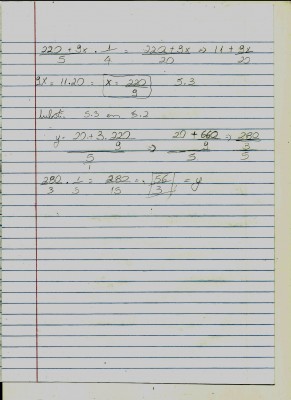 220 + 9x/5 · 1/4 = 220 + 9x/20 ⇒ 11 + 9x/20
9x = 11.20 = x = 220/9 5.3
Subst. 5.3 em 5.2
y = 20 + 3 . 220/9/5 ⇒ 20 + 660/9/5 = 280/3/5
280/3 . 1/5 = 280/15 = 56/3 = y